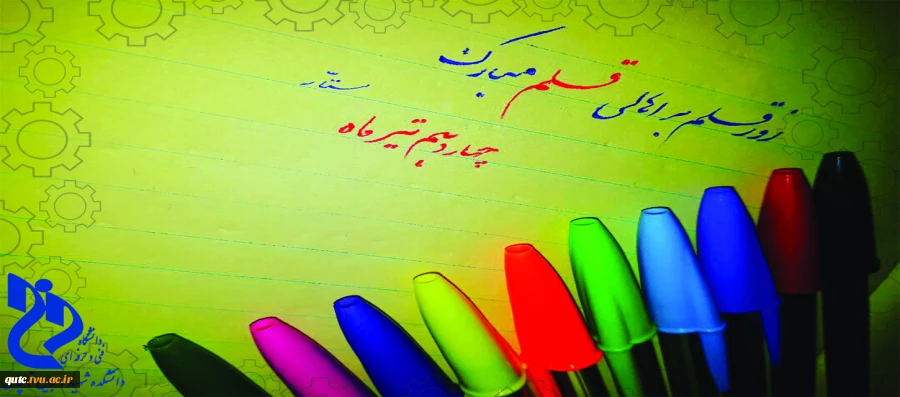 روز قلم بر اهالی قلم مبارک
ستّار
چهاردهم تیر ماه
دانشگاه
فنی و حرفه ای
دانشکده
qutc.tvu.ac.ir